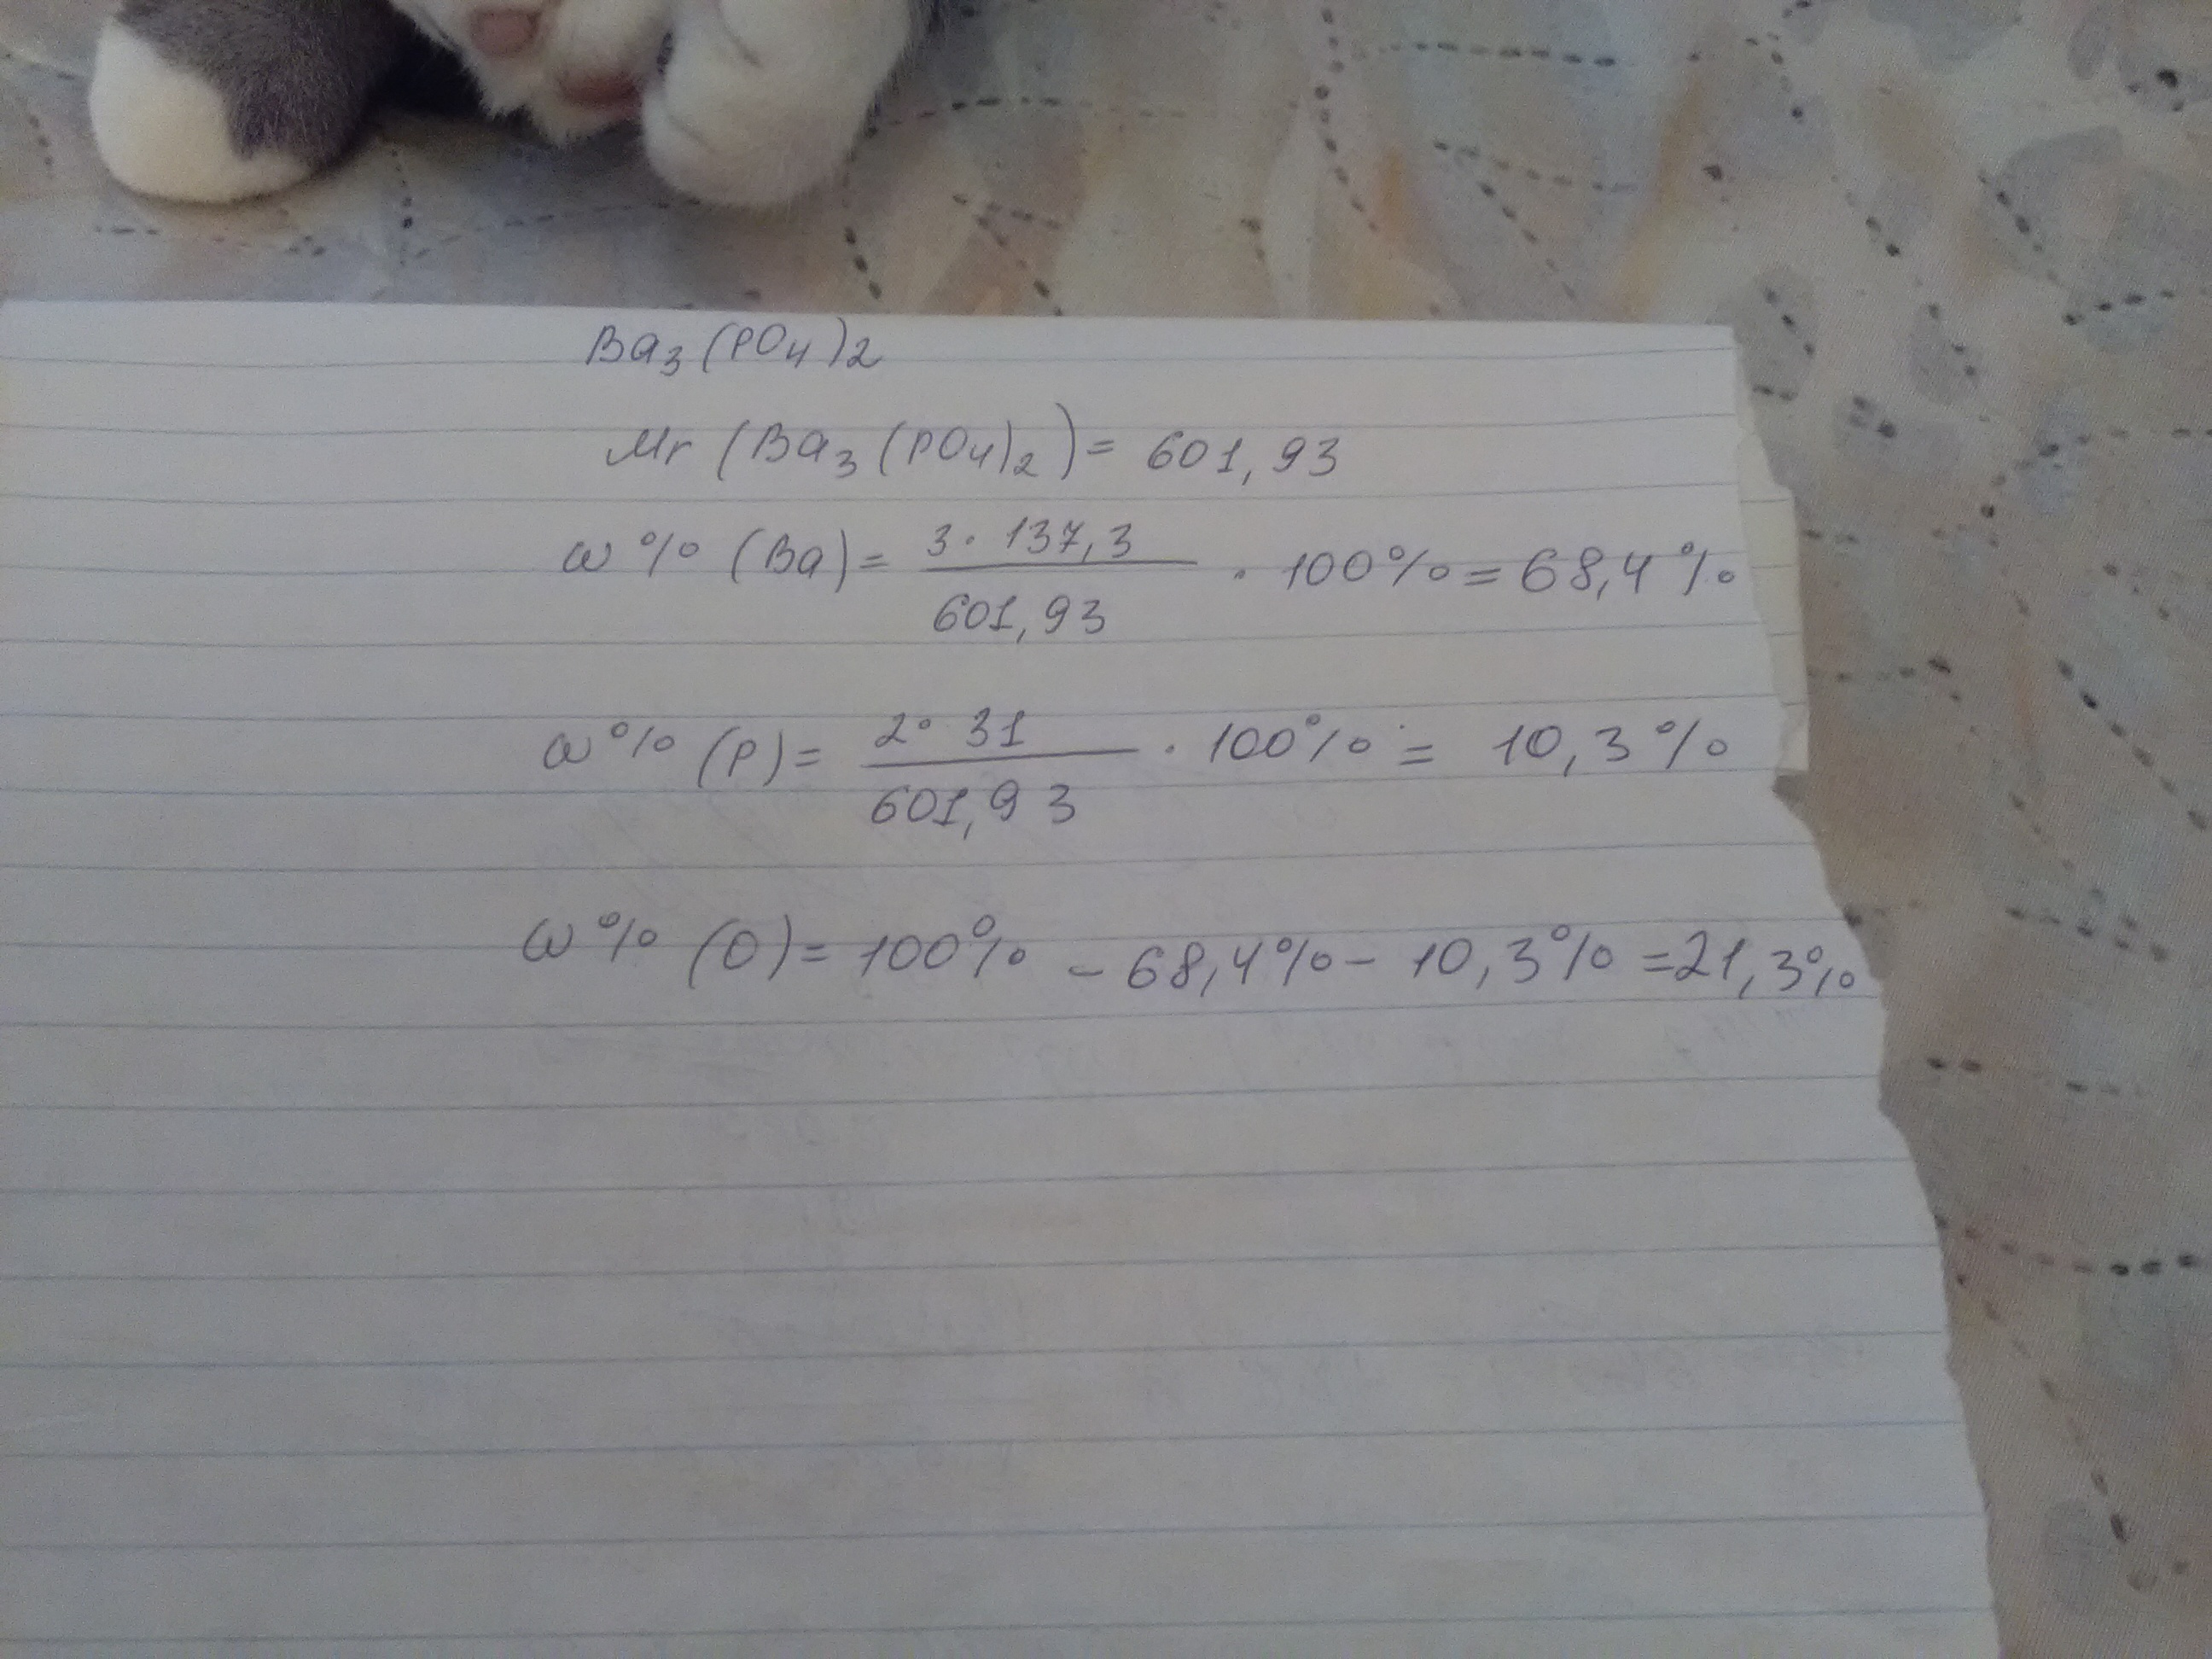 Ba₃(PO₄)₂
Mr (Ba₃(PO₄)₂) = 601,93
ω% (Ba) = 3· 137,3 / 601,93 · 100% = 68,4%
ω% (P) = 2· 31 / 601,93 · 100% = 10,3%
ω% (O) = 100% - 68,4% - 10,3% = 21,3%